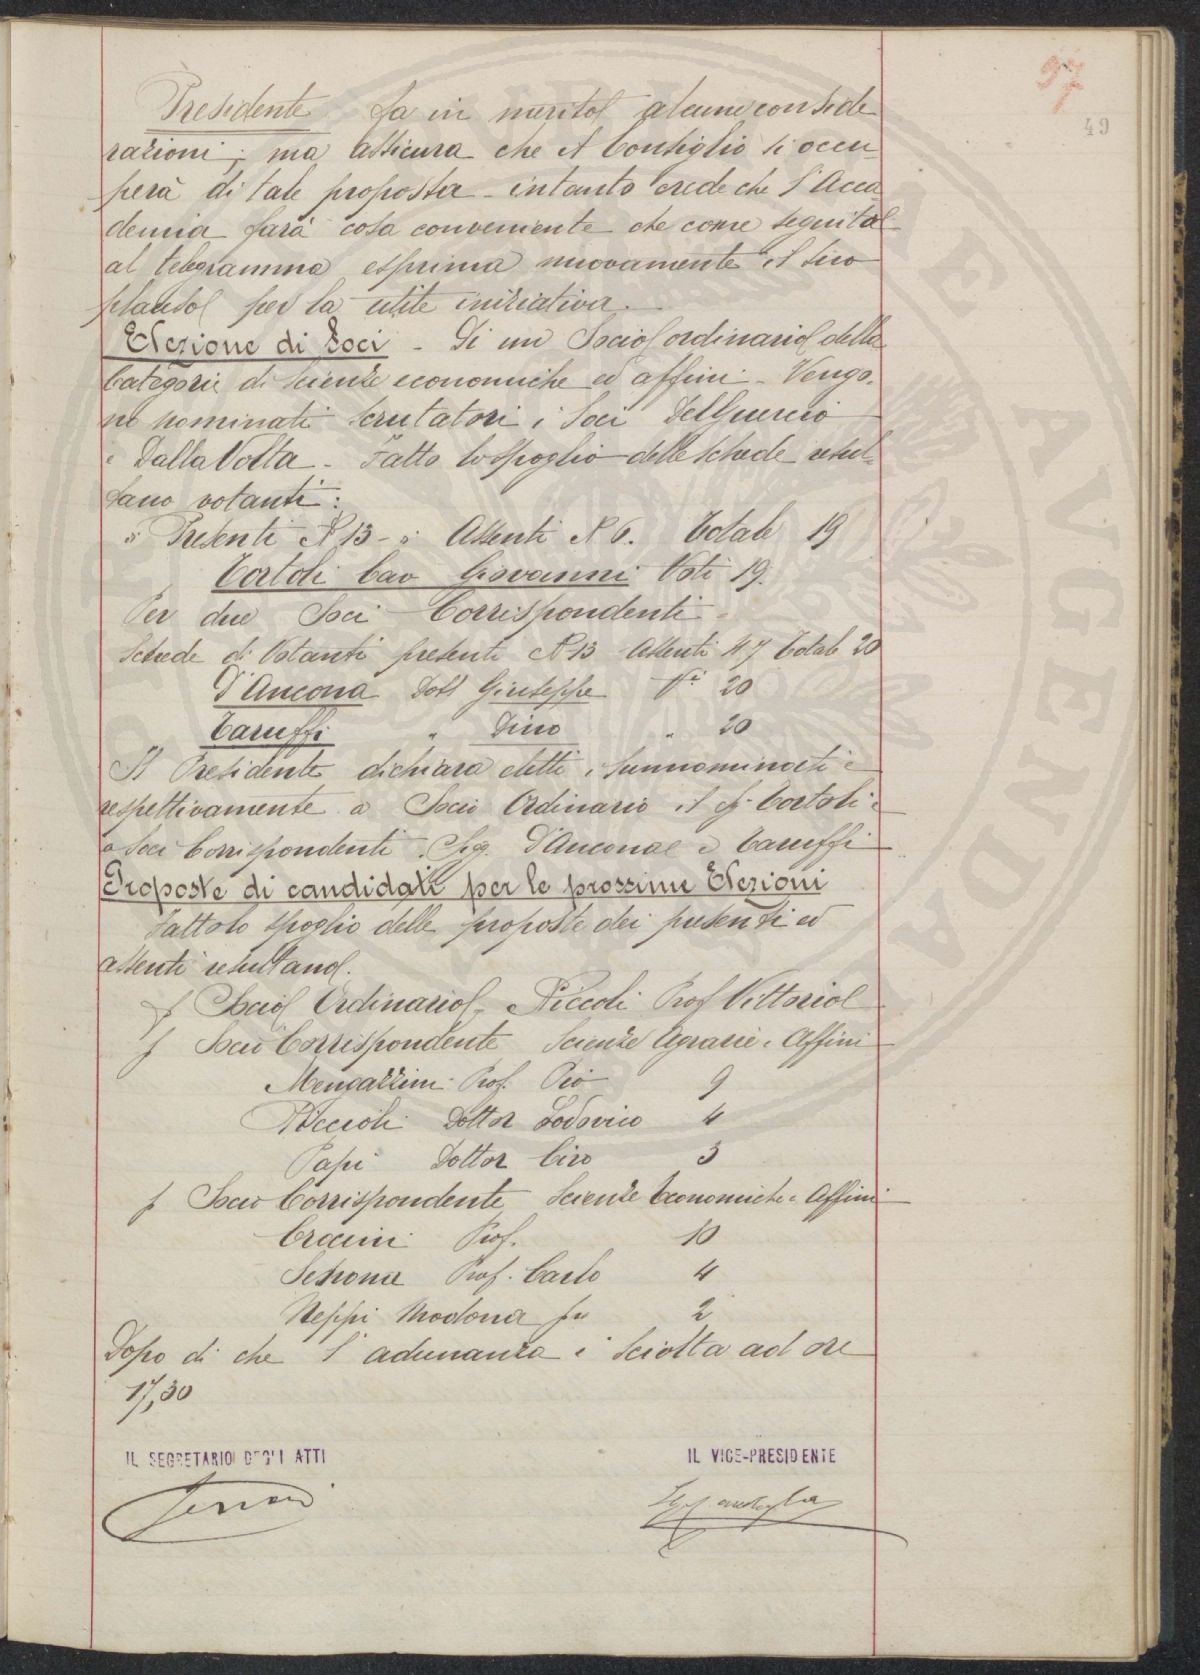 97
49
Presidente fa in merito alcune conside
razioni; ma assicura che il Consiglio si occu-
perà di tale proposta - intanto crede che l'Acca
demia farà cosa conveniente che come seguito
al telegramma esprima nuovamente il suo
plauso per la utile iniziativa.
Elezione di Soci - Di un Socio ordinario della
Categoria di Scienze economiche ed affini - Vengo-
no nominati scrutatori i Soci Del Guercio
e Dalla Volta - Fatto lo spoglio delle schede resul-
tano votanti:
i Presenti N 13 - i Assenti N 6. Totale 19
Tortoli Cav Giovanni Voti 19.
Per due Soci Corrispondenti -
Schede di Votanti presenti N 13 Assenti N 7 Totale 20
D'Ancona Dott Giuseppe Vi 20
Taruffi " Dino " 20
Il Presidente dichiara eletti i sunnominati e
respettivamente a Socio Ordinario il Sig. Tortoli e
a Soci Corrispondenti i Sigg. D'Ancona e Taruffi
Proposte di candidati per le prossime Elezioni
Fatto lo spoglio delle proposte dei presenti ed
assenti resultano.
p Socio Ordinario - Niccoli Prof Vittorio
p Socio Corrispondente Scienze Agrarie e Affini
Mengazzini Prof. Pio 9
Piccioli Dottor Lodovico 4
Papi Dottor Ciro 3
p Socio Corrispondente Scienze Economiche e Affini
Croccini Prof. 10
Prof. Carlo 4
Neppi Modona 2
Dopo di che l'adunanza è sciolta ad ore
17,30
IL SEGRETARIO DEGLI ATTI
IL VICE-PRESIDENTE